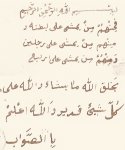 بسم الله الرحمن الرحيم
فمنهم من يمشى على بطنه و
منهم من يمشى على رجلين
ومنهم من يمشى على رابع
يخلق الله ما يشاء والله على
كل شيئ قدير والله اعلم
بالصواب